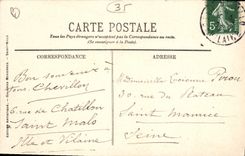 35
CARTE POSTALE
Tous les pays étrangers n'acceptent pas la Correspondance au recto.
(Se renseigner à la Poste)
CORRESPONDANCE
ADRESSE
Bon souvenir à
tous Chevillon
rue de Chatillon
Saint Malo
Ille et Vilaine
Mademoiselle
Peron
30, rue du Plateau
Saint Maurice
Seine
5